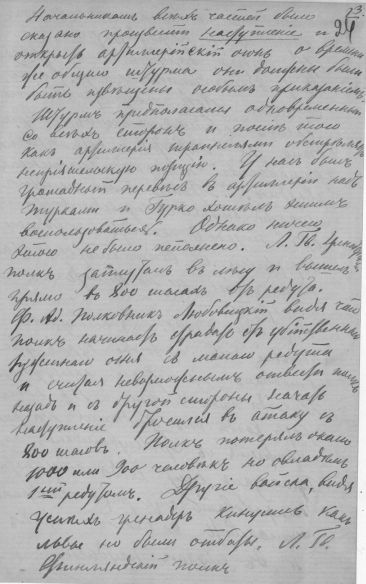 23.
24
Начальникамъ всѣхъ частей было
сказано произвести наступленіе и
открыть артиллерійскій огонь, о времени
же общаго штурма они должны были
быть извѣщены особымъ приказаніемъ.
Штурмъ предполагали одновременный
со всѣхъ сторонъ и послѣ того
какъ артиллерія
непріятельскую позицію. У насъ былъ
громадный перевѣсъ въ артиллеріи надъ
турками и Гурко хотѣлъ этимъ
воспользоваться. Однако ничего
этого не было исполнено. Л. Гв. Гренадерскій
полкъ въ лѣсу и вышелъ
прямо въ 800 шагахъ отъ редута.
Фл. Ад. Полковникъ Любовицкій видя что
полкъ начинаетъ страдать отъ убійственнаго
ружейнаго огня съ малаго редута
и считая невозможнымъ отвести полкъ
назадъ и съ другой стороны начать
наступленіе бросился въ атаку съ
800 шаговъ. Полкъ потерялъ около
1000 или 900 человѣкъ но овладѣлъ
1нмъ редутомъ. Другіе войска, видя
успѣхъ гренадеръ кинулись какъ
львы но были отбиты. Л. Гв.
Финляндскій полкъ